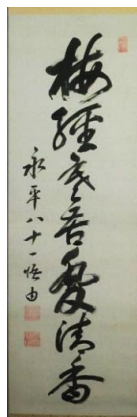 梅經寒苦發清香
永平八十一悟由